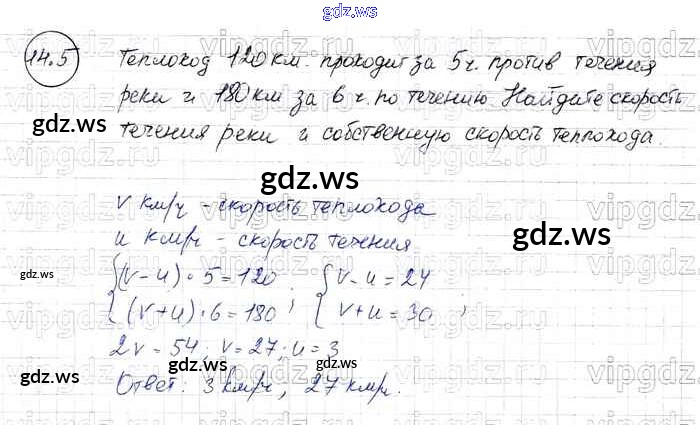 gdz.ws
14.5 Теплоход 120 км. проходит за 5 ч. против течения
реки и 180 км за 6 ч. по течению. Найдите скорость
течения реки и собственную скорость теплохода.
gdz.ws
gdz.ws
v км/ч - скорость теплохода
u км/ч - скорость течения
gdz.ws
{(v-u)·5=120 {v-u=24
{(v+u)·6=180 ; {v+u=30 ;
gdz.ws
2v=54; v=27; u=3
gdz.ws
gdz.ws
Ответ: 3 км/ч, 27 км/ч.